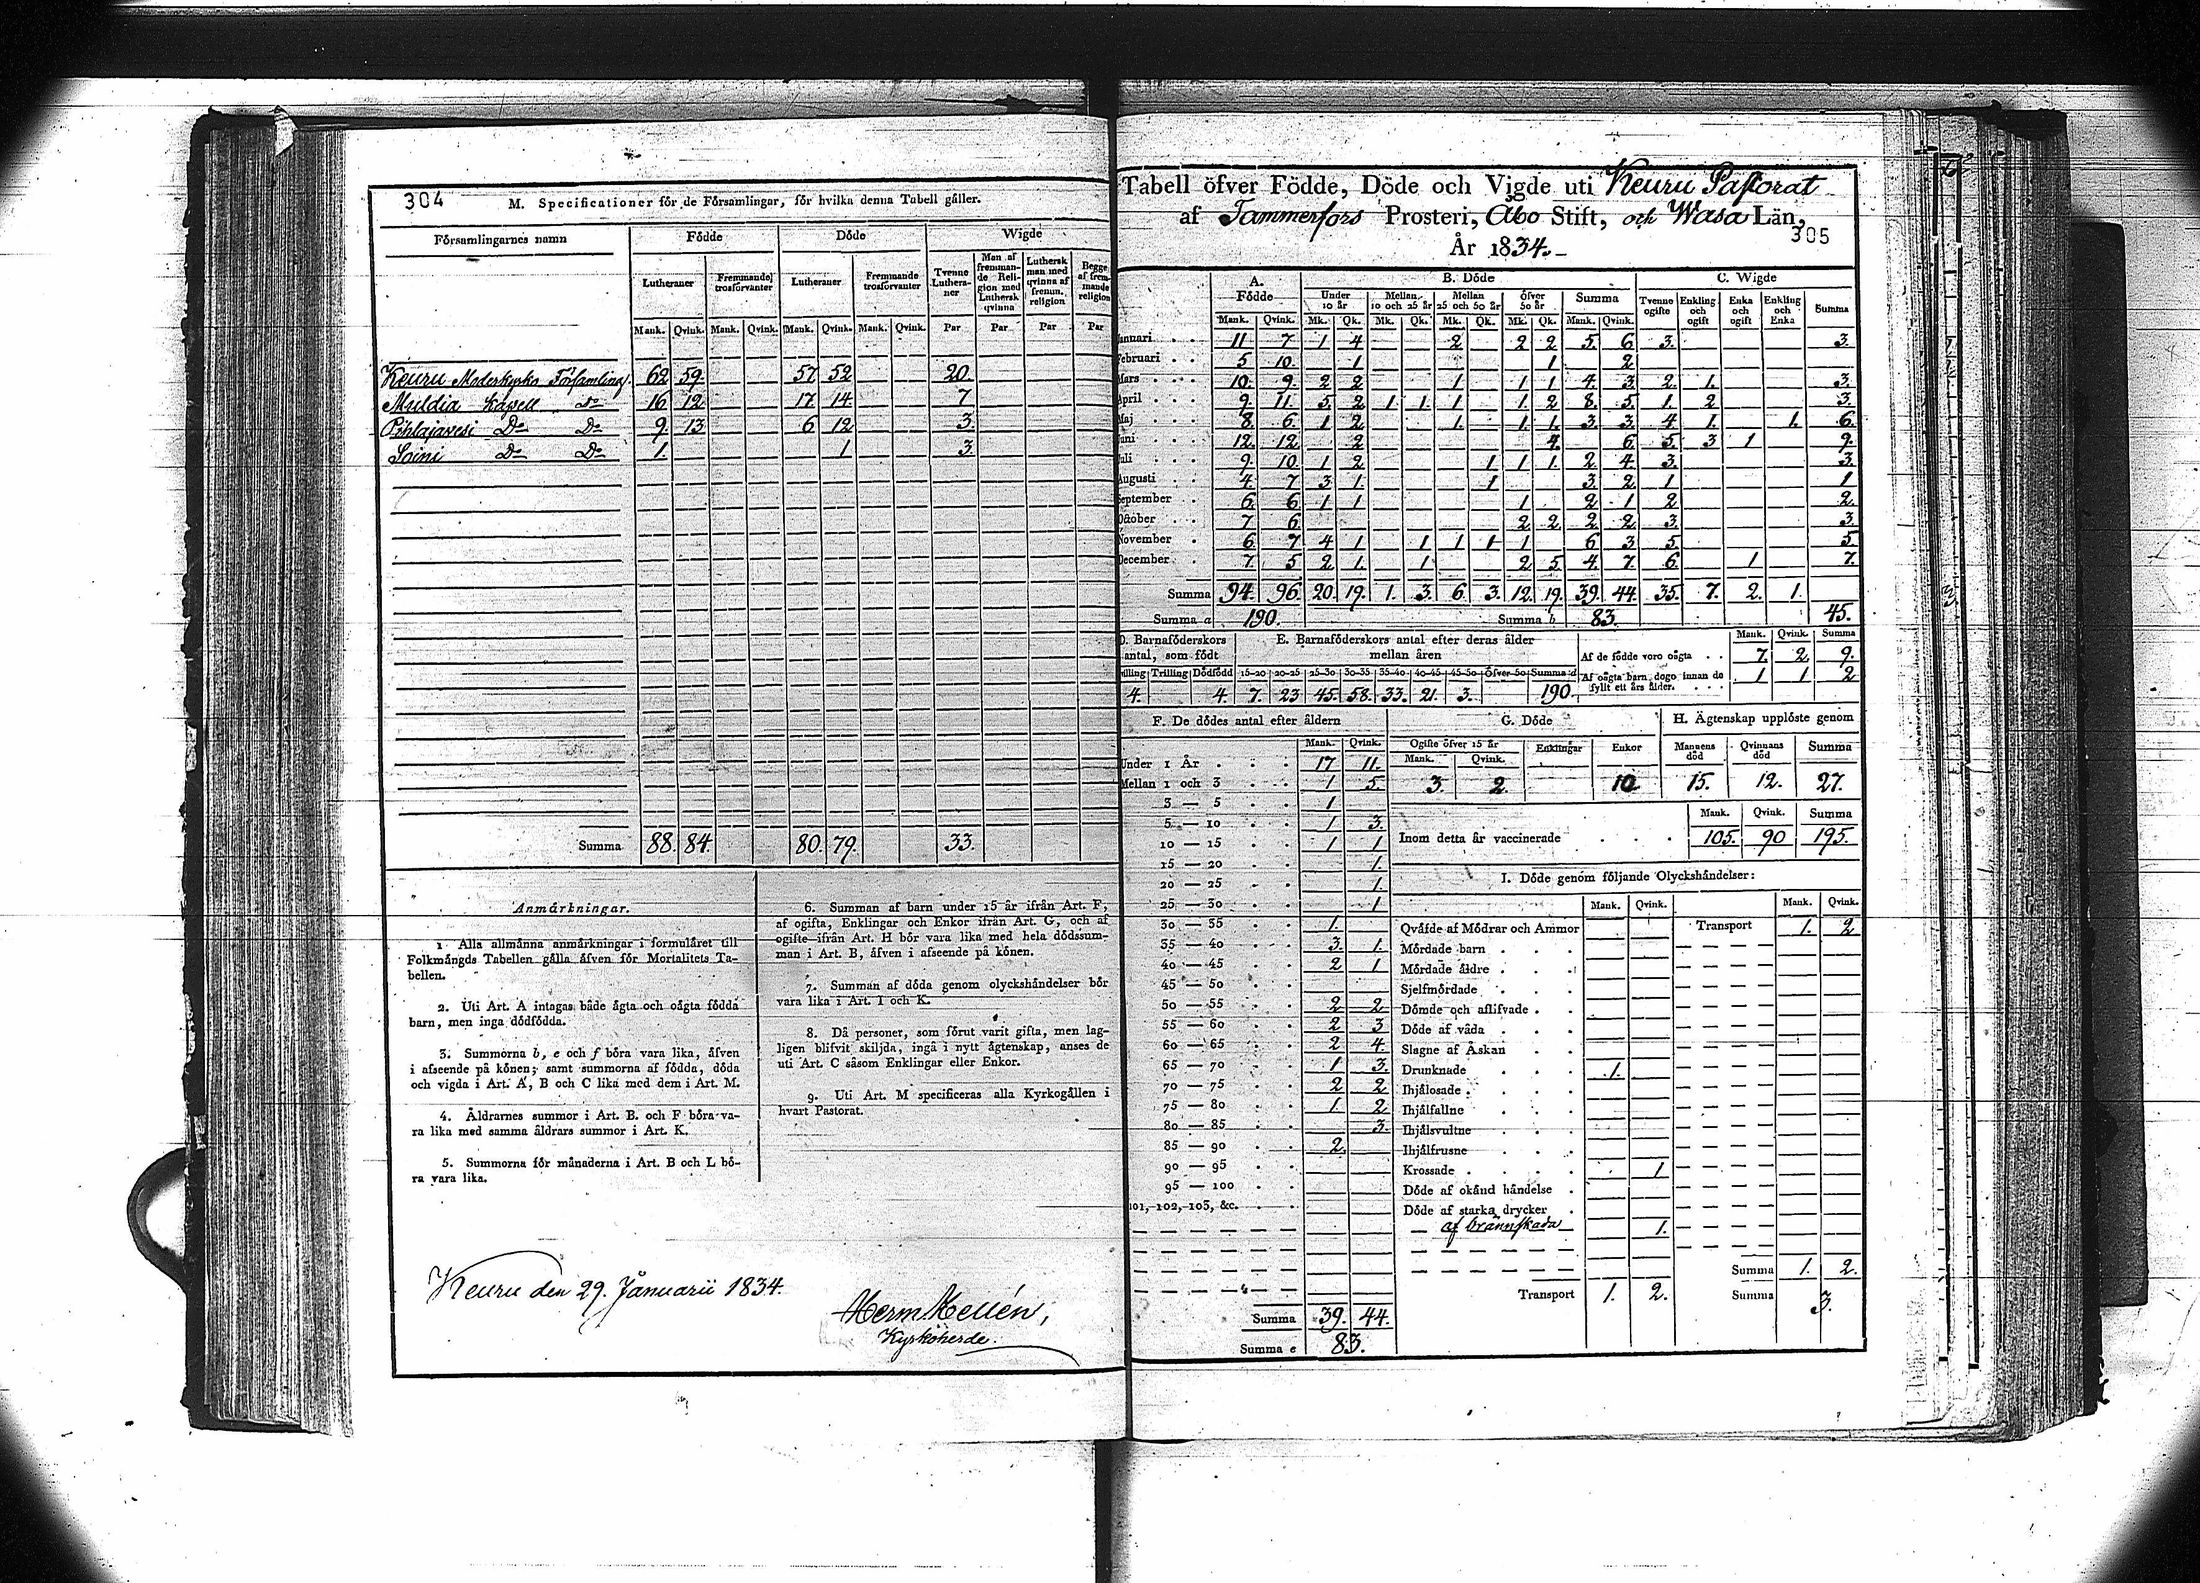 304
M. Specificationer för de Församlingar, för hvilka denna Tabell gäller.
Församlingarnes namn | Födde | Döde | Wigde
Lutheraner | Fremmande trosförvanter | Lutheraner | Fremmande trosförvanter | Tvenne Lutheraner | Man af fremmande Religion med Luthersk qvinna | Luthersk man med qvinna af fremm. religion | Begge af fremmande religion
Mank. | Qvink. | Mank. | Qvink. | Mank. | Qvink. | Mank. | Qvink. | Par | Par | Par | Par
Keuru Moderkyrko Församling | 62 | 59. | 57 | 52 | 20.
Muldia Kapell Do | 16 | 12 | 17 | 14 | 7
Pihlajavesi Do Do | 9. | 13 | 6 | 12 | 3.
Soini Do Do | 1. | 1 | 3.
Summa | 88. | 84. | 80. | 79. | 33.
Anmärkningar.
1. Alla allmänna anmärkningar i formuläret till
Folkmängds Tabellen gälla äfven för Mortalitets Ta-
bellen.
2. Uti Art. A intagas både ägta och oägta födda
barn, men inga dödfödda.
3. Summorna b, e och f böra vara lika, äfven
i afseende på könen; samt summorna af födda, döda
och vigda i Art. A, B och C lika med dem i Art. M.
4. Åldrarnes summor i Art. B. och F böra va-
ra lika med samma åldrars summor i Art. K.
5. Summorna för månaderna i Art. B och L bö-
ra vara lika.
6. Summan af barn under 15 år ifrån Art. F,
af ogifta, Enklingar och Enkor ifrån Art. G, och af
ogifte ifrån Art. H bör vara lika med hela dödssum-
man i Art. B, äfven i afseende på könen.
7. Summan af döda genom olyckshändelser bör
vara lika i Art. I och K.
8. Då personer, som förut varit gifta, men lag-
ligen blifvit skiljda, ingå i nytt ägtenskap, anses de
uti Art. C såsom Enklingar eller Enkor.
9. Uti Art. M specificeras alla Kyrkogällen i
hvart Pastorat.
Keuru den 29. Januarii 1834.
Herm. Mellén,
Kyrkoherde.
Tabell öfver Födde, Döde och Vigde uti Keuru Pastorat
af Tammerfors Prosteri, Åbo Stift, och Wasa Län,
År 1834.
305
A. Födde | B. Döde | C. Wigde
Under 10 år | Mellan 10 och 25 år | Mellan 25 och 50 år | Öfver 50 år | Summa | Tvenne ogifte | Enkling och ogift | Enka och ogift | Enkling och Enka | Summa
Mank. | Qvink. | Mk. | Qk. | Mk. | Qk. | Mk. | Qk. | Mk. | Qk. | Mank. | Qvink.
Januari | 11 | 7 | 1 | 4 | 2 | 2 | 2 | 5. | 6 | 3. | 3.
Februari | 5 | 10. | 1 | 1 | 2
Mars | 10. | 9. | 2 | 2 | 1 | 1 | 1 | 4. | 3 | 2. | 1. | 3.
April | 9. | 11. | 5. | 2 | 1 | 1. | 1. | 1. | 2 | 8. | 5. | 1. | 2 | 3.
Maj | 8. | 6. | 1 | 2 | 1. | 1. | 1. | 3. | 3 | 4. | 1. | 1. | 6.
Juni | 12. | 12. | 2 | 4. | 6 | 5. | 3 | 1 | 9.
Juli | 9. | 10. | 1 | 2 | 1 | 1 | 1. | 2 | 4. | 3. | 3.
Augusti | 4. | 7 | 3 | 1 | 1 | 3 | 2. | 1 | 1
September | 6. | 6 | 1 | 1 | 1 | 2 | 1 | 2 | 2.
October | 7 | 6 | 2 | 2 | 2 | 2 | 3. | 3.
November | 6 | 7 | 4 | 1 | 1 | 1 | 1 | 1 | 6 | 3 | 5. | 5.
December | 7. | 5 | 2 | 1. | 1 | 2 | 5. | 4. | 7. | 6 | 1 | 7.
Summa | 94. | 96. | 20. | 19. | 1. | 3. | 6. | 3. | 12. | 19. | 39. | 44. | 35. | 7. | 2. | 1.
Summa a | 190. | Summa b | 83. | 45.
D. Barnaföderskors antal, som födt | E. Barnaföderskors antal efter deras ålder mellan åren
Mank. | Qvink. | Summa
Af de födde voro oägta | 7. | 2 | 9.
Af oägta barn dogo innan de fyllt ett års ålder. | 1 | 1 | 2
Tvilling | Trilling | Dödfödd | 15-20 | 20-25 | 25-30 | 30-35 | 35-40 | 40-45 | 45-50 | Öfver 50 | Summa d
4. | 4. | 7. | 23 | 45. | 58. | 33. | 21. | 3. | 190.
F. De dödes antal efter åldern
Mank. | Qvink.
Under 1 År | 17 | 11.
Mellan 1 och 3 | 1 | 5
3 — 5 | 1
5 — 10 | 1 | 3.
10 — 15 | 1 | 1
15 — 20 | 1.
20 — 25 | 1.
25 — 30 | 1
30 — 35 | 1.
35 — 40 | 3. | 1.
40 — 45 | 2 | 1
45 — 50
50 — 55 | 2 | 2
55 — 60 | 2 | 3
60 — 65 | 2 | 4.
65 — 70 | 1 | 3.
70 — 75 | 2 | 2
75 — 80 | 1. | 2
80 — 85 | 3.
85 — 90 | 2.
90 — 95
95 — 100
101, 102, 103, &c.
Summa | 39. | 44.
Summa e | 83.
G. Döde | H. Ägtenskap upplöste genom
Ogifte öfver 15 år | Enklingar | Enkor | Mannens död | Qvinnans död | Summa
Mank. | Qvink.
3. | 2. | 10 | 15. | 12. | 27.
Mank. | Qvink. | Summa
Inom detta år vaccinerade | 105. | 90 | 195.
I. Döde genom följande Olyckshändelser:
Mank. | Qvink. | Mank. | Qvink.
Qväfde af Mödrar och Ammor | Transport | 1. | 2
Mördade barn
Mördade äldre
Sjelfmördade
Dömde och aflifvade
Döde af våda
Slagne af Åskan
Drunknade | 1.
Ihjälosade
Ihjälfallne
Ihjälsvultne
Ihjälfrusne
Krossade | 1
Döde af okänd händelse
Döde af starka drycker
— af brännskada | 1.
Summa | 1. | 2.
Transport | 1. | 2. | Summa | 3.